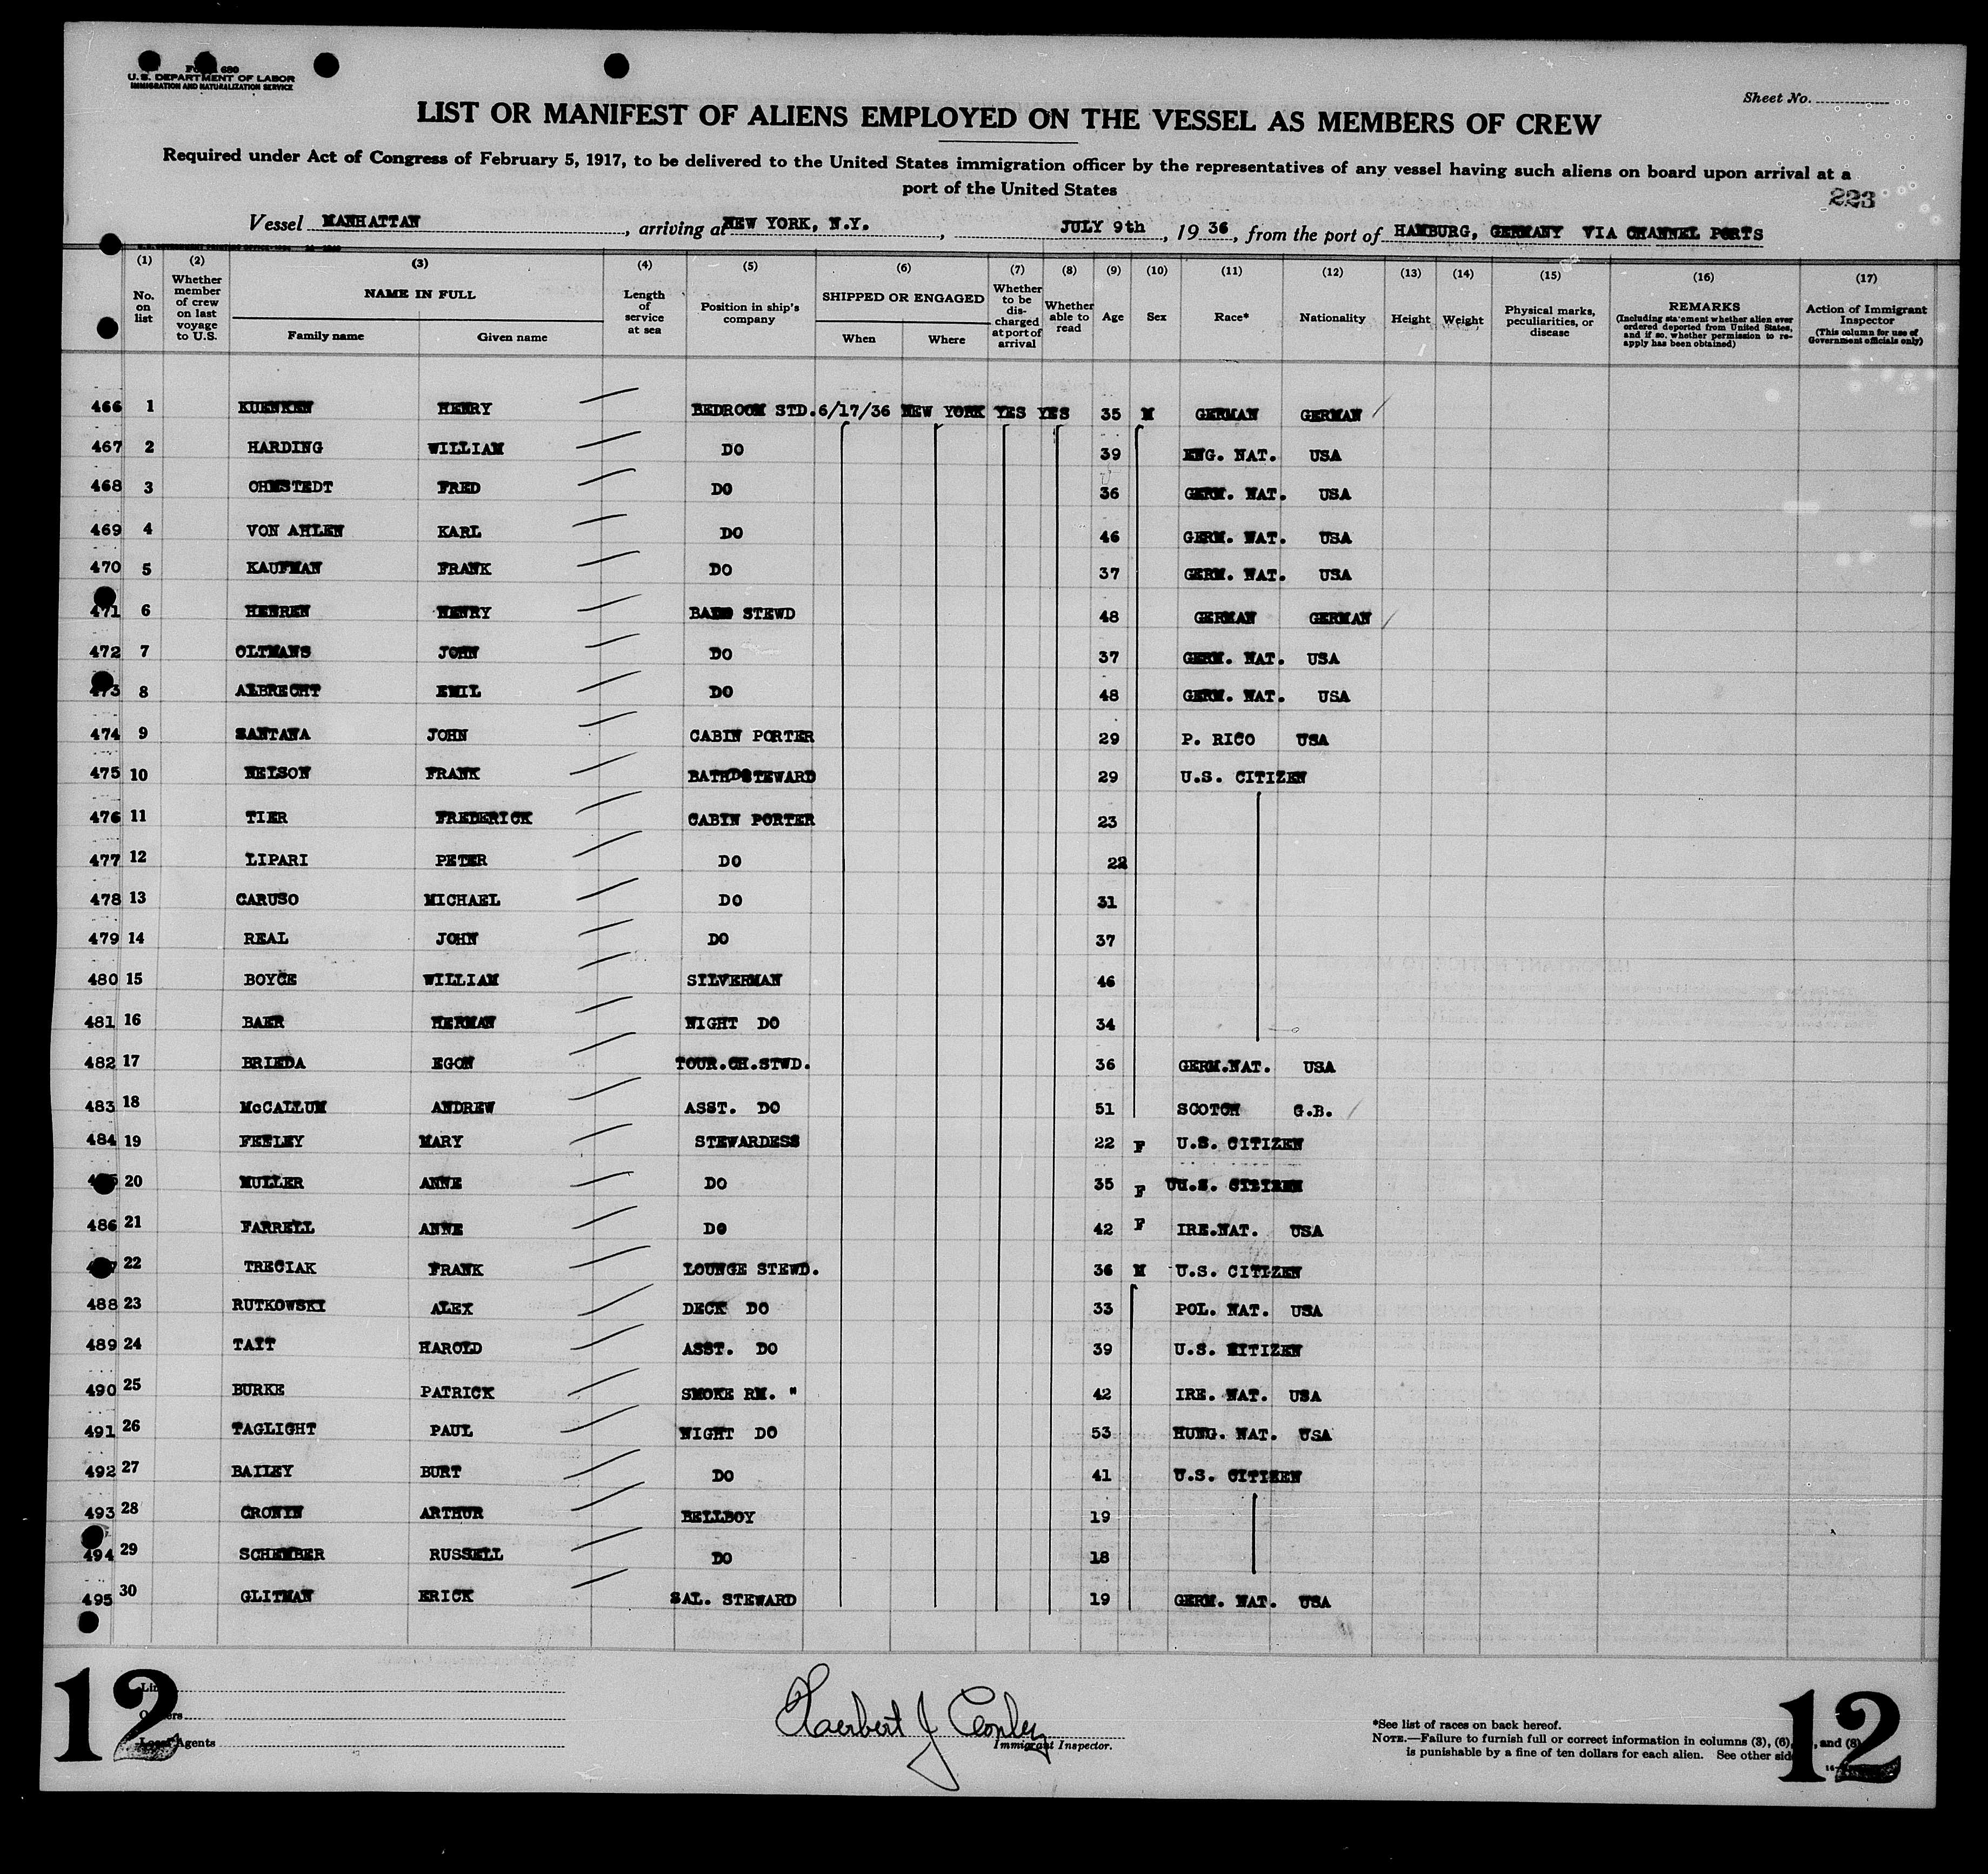 Form 680
U.S. DEPARTMENT OF LABOR
IMMIGRATION AND NATURALIZATION SERVICE
Sheet No.
LIST OR MANIFEST OF ALIENS EMPLOYED ON THE VESSEL AS MEMBERS OF CREW
Required under Act of Congress of February 5, 1917, to be delivered to the United States immigration officer by the representatives of any vessel having such aliens on board upon arrival at a
port of the United States
223
Vessel MANHATTAN, arriving at NEW YORK, N.Y., JULY 9th, 1936, from the port of HAMBURG, GERMANY VIA CHANNEL PORTS
(1) No. on list
(2) Whether member of crew on last voyage to U.S.
(3) NAME IN FULL
Family name Given name
(4) Length of service at sea
(5) Position in ship's company
(6) SHIPPED OR ENGAGED
When Where
(7) Whether to be discharged at port of arrival
(8) Whether able to read
(9) Age
(10) Sex
(11) Race*
(12) Nationality
(13) Height
(14) Weight
(15) Physical marks, peculiarities, or disease
(16) REMARKS (Including statement whether alien ever ordered deported from United States, and if so, whether permission to re-apply has been obtained)
(17) Action of Immigrant Inspector (This column for use of Government officials only)
466 1 KUENKEN HENRY BEDROOM STD. 6/17/36 NEW YORK YES YES 35 M GERMAN GERMAN
467 2 HARDING WILLIAM DO 39 ENG. NAT. USA
468 3 OHMSTEDT FRED DO 36 GERM. NAT. USA
469 4 VON AHLEN KARL DO 46 GERM. NAT. USA
470 5 KAUFMAN FRANK DO 37 GERM. NAT. USA
471 6 HENREN HENRY STEWD 48 GERMAN GERMAN
472 7 OLTMANS JOHN DO 37 GERM. NAT. USA
473 8 ALBRECHT EMIL DO 48 GERM. NAT. USA
474 9 SANTANA JOHN CABIN PORTER 29 P. RICO USA
475 10 NELSON FRANK BATHDSTEWARD 29 U.S. CITIZEN
476 11 TIER FREDERICK CABIN PORTER 23
477 12 LIPARI PETER DO 22
478 13 CARUSO MICHAEL DO 31
479 14 REAL JOHN DO 37
480 15 BOYCE WILLIAM SILVERMAN 46
481 16 BAER HERMAN NIGHT DO 34
482 17 BRIEDA EGON TOUR.CH.STWD. 36 GERM.NAT. USA
483 18 McCALLUM ANDREW ASST. DO 51 SCOTCH G.B.
484 19 FEELEY MARY STEWARDESS 22 F U.S. CITIZEN
20 MULLER ANNE DO 35 F U.S. CITIZEN
486 21 FARRELL ANNE DO 42 F IRE.NAT. USA
22 TRECIAK FRANK LOUNGE STEWD. 36 M U.S. CITIZEN
488 23 RUTKOWSKI ALEX DECK DO 33 POL. NAT. USA
489 24 TAIT HAROLD ASST. DO 39 U.S. CITIZEN
490 25 BURKE PATRICK SMOKE RM. " 42 IRE. NAT. USA
491 26 TAGLIGHT PAUL NIGHT DO 53 HUNG. NAT. USA
492 27 BAILEY BURT DO 41 U.S. CITIZEN
493 28 CRONIN ARTHUR BELLBOY 19
494 29 SCHEMBER RUSSELL DO 18
495 30 GLITMAN ERICK SAL. STEWARD 19 GERM. NAT. USA
12
Line
Owners
Local Agents
Herbert J Conley
Immigrant Inspector.
*See list of races on back hereof.
NOTE.—Failure to furnish full or correct information in columns (3), (6), and (8)
is punishable by a fine of ten dollars for each alien. See other side
12